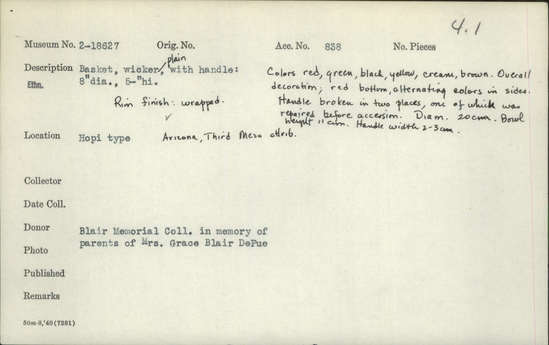 4.1
Museum No. 2-18627 Orig. No. Acc. No. 838 No. Pieces
plain
Description Basket, wicker, with handle: Colors red, green, black, yellow, cream, brown. Overall
Ethn. 8"dia., 5-"hi. decoration; red bottom, alternating colors in sides.
Rim finish: wrapped. Handle broken in two places, one of which was
repaired before accession. Diam. 20cm. Bowl
height 11 cm. Handle width 2-3cm.
Location Hopi type Arizona, Third Mesa attrib.
Collector
Date Coll.
Donor Blair Memorial Coll. in memory of
Photo parents of Mrs. Grace Blair DePue
Published
Remarks
50m-8,'40(7281)